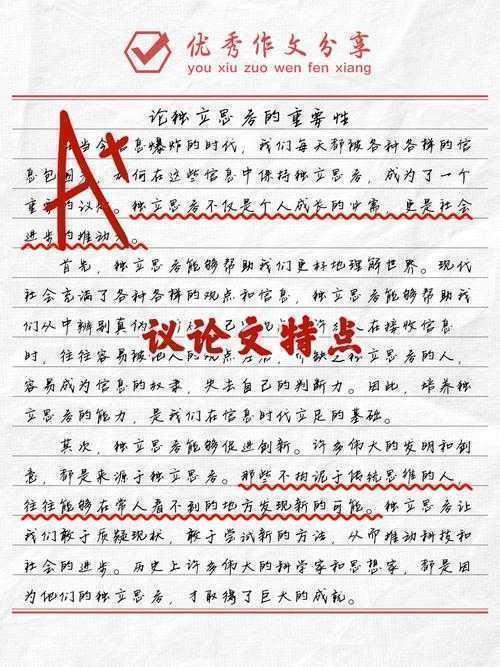 优秀作文分享
you xiu zuo wen fen xiang
论独立思考的重要性
A+
当今信息爆炸的时代，我们每天都被各种各样的信
息包围，如何在这些信息中保持独立思考，成为了一个
重要的议题。独立思考不仅是个人成长的必需，更是社会
进步的推动力。
首先，独立思考能够帮助我们更好地理解世界。现代
社会充满了各种各样的观点和信息，独立思考能够帮助我
们从中辨别真伪，己 许 在接收信息
议论文特点
时，往往容易被他人的观点左右，缺乏独立思考的人，
容易成为信息的奴隶，失去自己的判断力。因此，培养独
立思考的能力，是我们在信息时代立足的基础。
其次，独立思考能够促进创新。许多伟大的发明和创
意，都是来源于独立思考。那些不拘泥于传统思维的人，
往往能够在常人看不到的地方发现新的可能。独立思考让
我们敢于质疑现状，敢于尝试新的方法，从而推动科技和
社会的进步。历史上许多伟大的科学家和思想家，都是因
为他们的独立思考，才取得了巨大的成就。